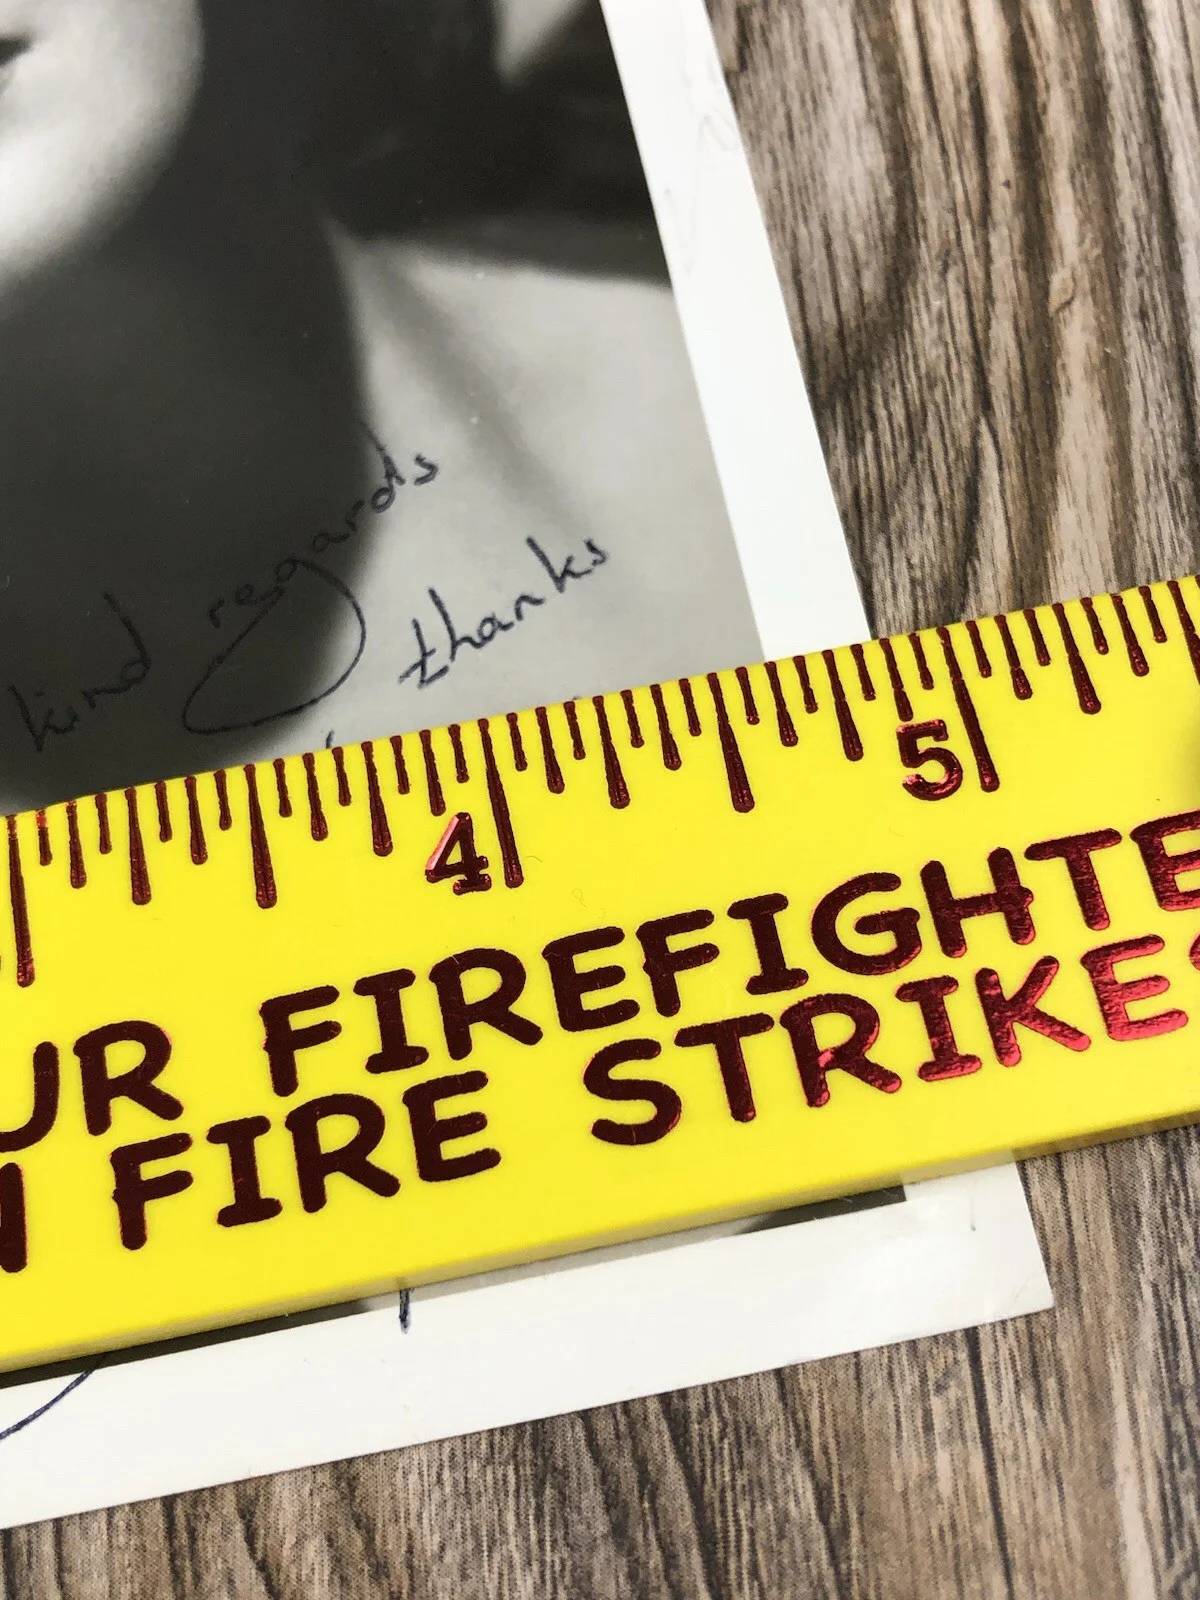 kind regards
thanks
4 5
UR FIREFIGHTE
FIRE STRIKES